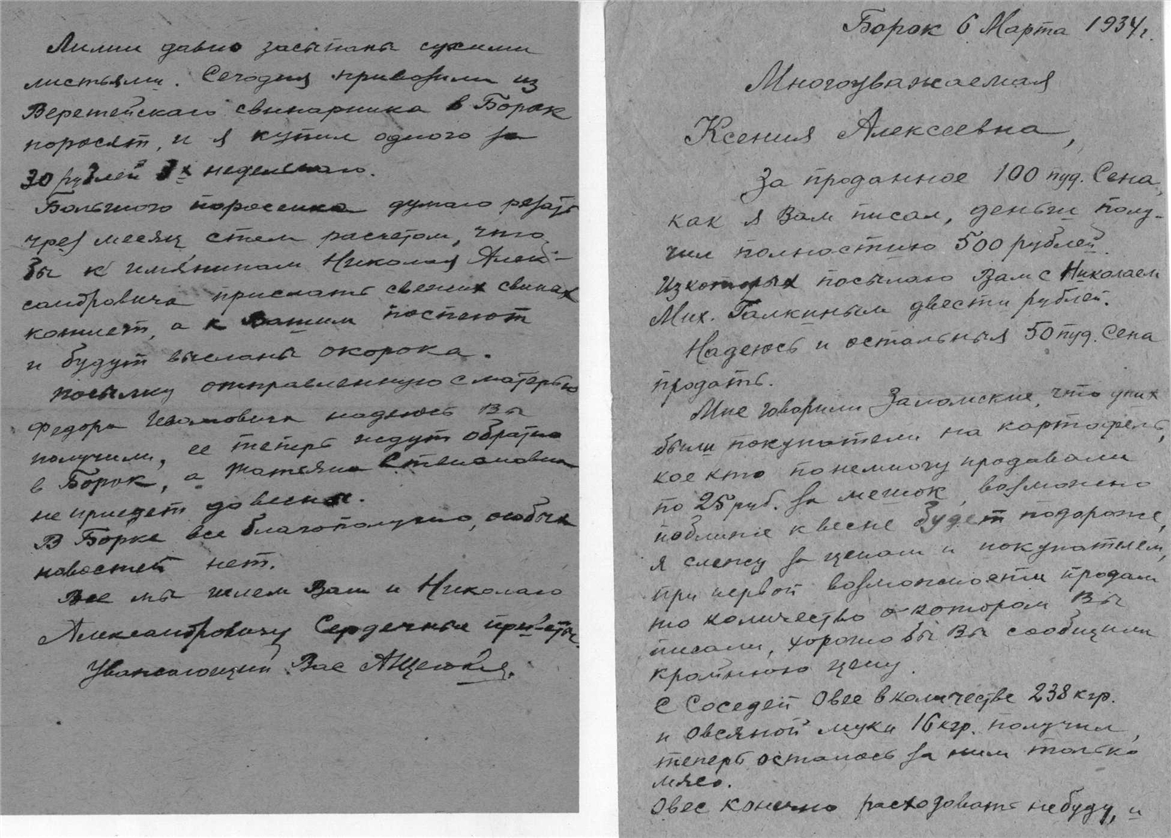 Лилии давно засыпаны сухими
листьями. Сегодня привозили из
Веретейскаго свинарника в Борок
поросят, и я купил одного за
30 рублей 3х недельнаго.
Большого поросенка думаю резать
чрез месяц стем расчетом, что
бы к имянинам Николая Алек-
сандровича прислать свежих свиных
котлет, а к Вашим поспеют
и будут высланы окорока.
Посылку отправленную с матерью
Федора Ивановича надеюсь Вы
получили, ее теперь ждут обратно
в Борок, а Татьяна Степановна
не приедет до весны.
В Борке все благополучно, особых
новостей нет.
Все мы шлем Вам и Николаю
Александровичу Сердечные приветы.
Уважающий Вас
Борок 6 Марта 1934г.
Многоуважаемая
Ксения Алексеевна,
За проданное 100 пуд. Сена,
как я Вам писал, деньги полу-
чил полностию 500 рублей.
Из которых посылаю Вам с Николаем
Мих. Галкиным двести рублей.
Надеюсь и остальныя 50 пуд. Сена
продать.
Мне говорили Заломские, что у них
были покупатели на картофель,
кое кто понемногу продавали
по 25 руб. за мешок, возможно
поближе к весне будет подороже,
я слежу за ценам и покупателем,
при первой возможности продам
то количество о котором Вы
писали, хорошо бы Вы сообщили
крайнюю цену.
С Соседей Овес в количестве 238 кгр.
и Овсяной муки 16 кгр. получил,
теперь осталось за ним только
мясо.
Овес конечно расходовать небуду, и